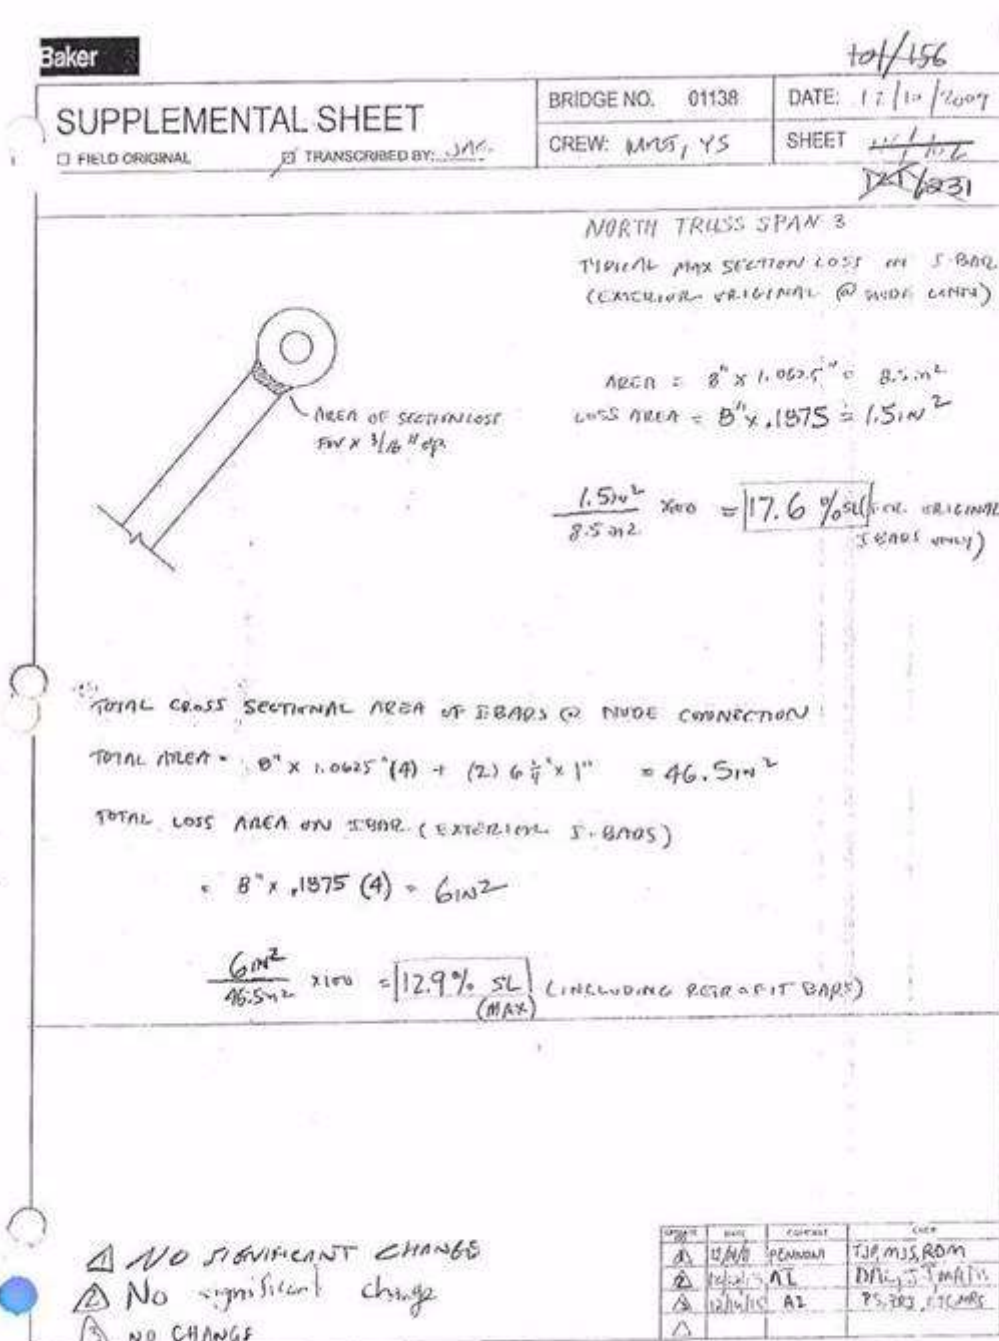 Baker
SUPPLEMENTAL SHEET
FIELD ORIGINAL
TRANSCRIBED BY:
BRIDGE NO. 01138
CREW: YS
DATE: 12/10/2009
SHEET
NORTH TRUSS SPAN 3
TYPICAL MAX SECTION LOSS ON I-BAR
(EXTERIOR ORIGINAL @ NODE CONN)
AREA OF SECTION LOSS
FW x 3/16" dp.
AREA = 8" x 1.0625" = 8.5 in2
LOSS AREA = 8" x .1875 = 1.5 IN2
1.5in2
8.5 in2
x100 = 17.6 % SL (FOR ORIGINAL
I BARS ONLY)
TOTAL CROSS SECTIONAL AREA OF I-BARS @ NODE CONNECTION
TOTAL AREA = 8" x 1.0625" (4) + (2) 6 1/4" x 1" = 46.5 IN2
TOTAL LOSS AREA ON IBAR (EXTERIOR I-BARS)
= 8" x .1875 (4) = 6 IN2
6 IN2
46.5 in2
x100 = 12.9% SL (INCLUDING RETROFIT BARS)
(MAX)
1 NO SIGNIFICANT CHANGE
2 No significant change
3 NO CHANGE
DATE
1 PENNONI TJP, MJS, ROM
2 AI
3 AI